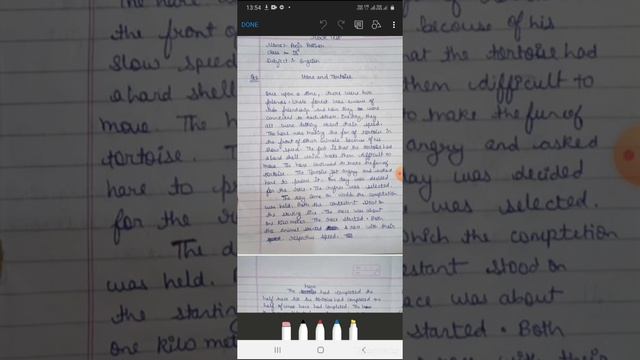 13:54
DONE
Mock Test
Class -
Subject : English
Hare and Tortoise
Once upon a time, there were two
friends. Whole forest was aware of
their friendship and how they
connected to each other. One day, they
all were talking about their speed.
The hare was making the fun of tortoise in
the front of other animals because of his
slow speed. The fact is that the tortoise had
a hard shell which make them difficult to
move. The hare continued to make the fun of
tortoise. The tortoise got angry and asked
hare to prove it. One day was decided
for the race. The umpire was selected.
The day came on which the comptetion
was held. Both the contestant stood on
the starting line. The race was about
one kilo meter. The race started. Both
the animal started run with their
respective speed.
hare
The had completed the
half race till the tortoise had completed
half of race had completed. The
the front of
slow speed
a hard shell
move. The h
tortoise. The
hare to p
for the
The d
was held.
the starting
one kilo me
because of his
that the tortoise had
them difficult to
to make the fun of
angry and asked
day was decided
was selected.
which the comptetion
stant stood on
ace was about
started. Both